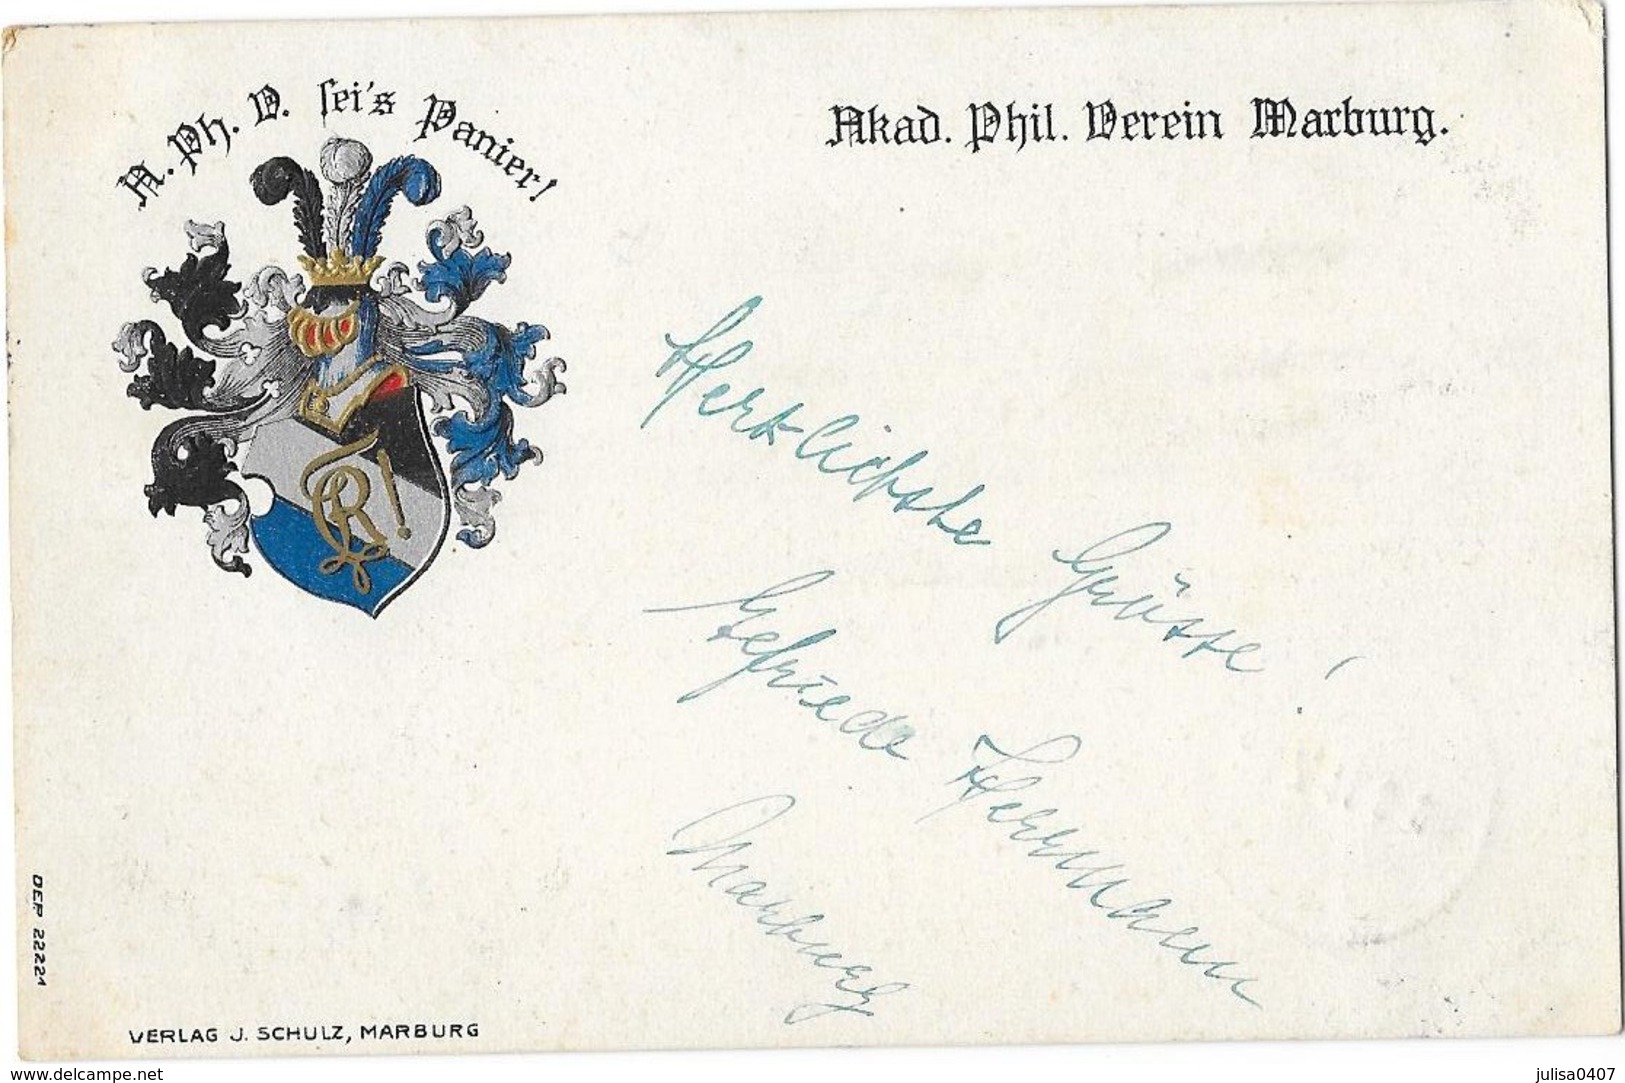 A. Ph. V. sei's Panier!
Akad. Phil. Verein Marburg.
Herzlichste Grüsse!
Hermann
Marburg
DEP. 22221
VERLAG J. SCHULZ, MARBURG
delcampe.net
julisa0407